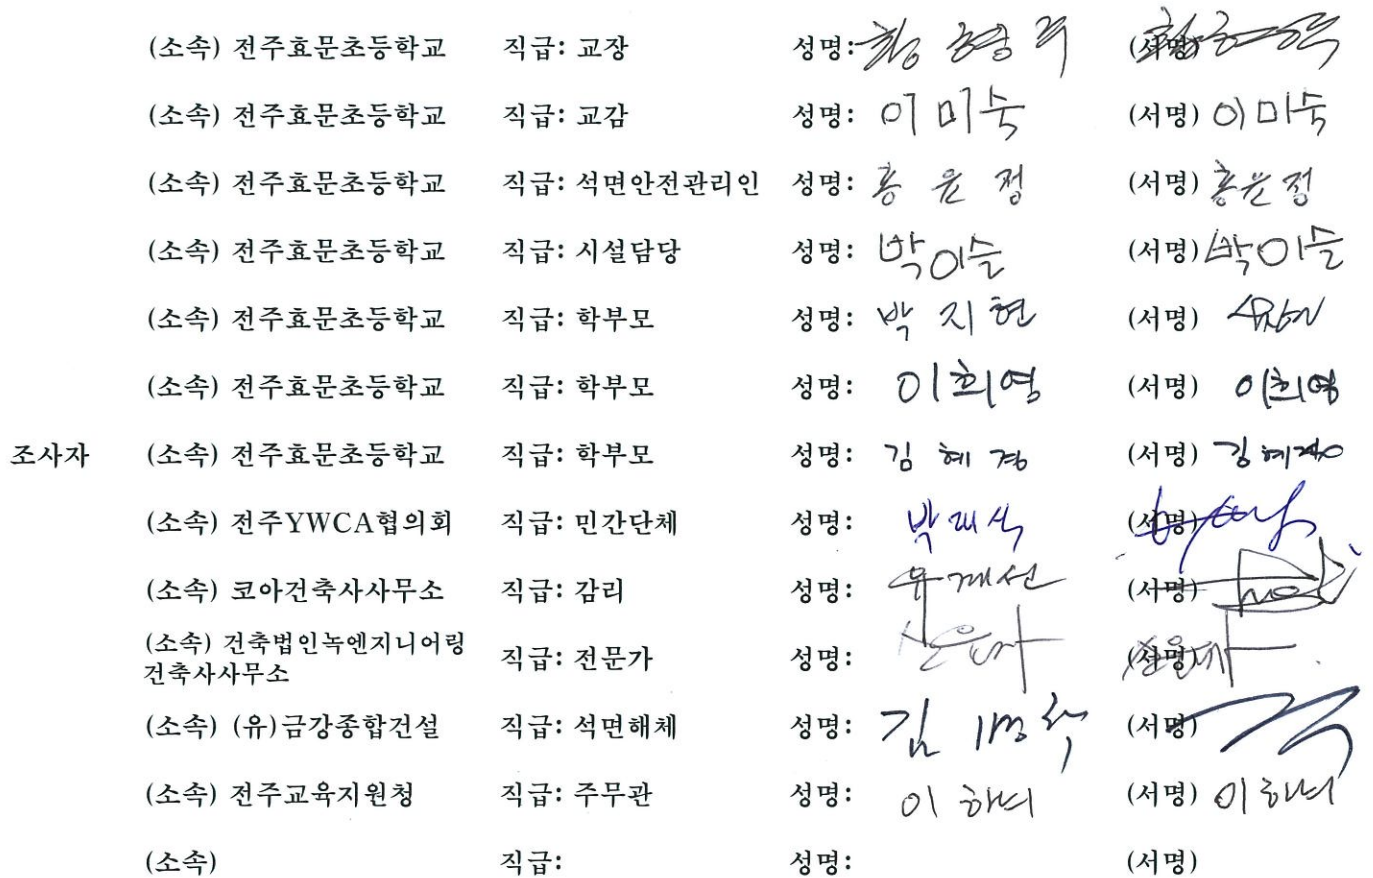 (소속) 전주효문초등학교 직급: 교장 성명: (서명)
(소속) 전주효문초등학교 직급: 교감 성명: 이미숙 (서명) 이미숙
(소속) 전주효문초등학교 직급: 석면안전관리인 성명: 홍윤정 (서명) 홍윤정
(소속) 전주효문초등학교 직급: 시설담당 성명: 박이슬 (서명) 박이슬
(소속) 전주효문초등학교 직급: 학부모 성명: 박지현 (서명)
(소속) 전주효문초등학교 직급: 학부모 성명: 이희영 (서명) 이희영
조사자 (소속) 전주효문초등학교 직급: 학부모 성명: 김혜경 (서명) 김혜경
(소속) 전주YWCA협의회 직급: 민간단체 성명: (서명)
(소속) 코아건축사사무소 직급: 감리 성명: (서명)
(소속) 건축법인녹엔지니어링
건축사사무소 직급: 전문가 성명: (서명)
(소속) (유)금강종합건설 직급: 석면해체 성명: (서명)
(소속) 전주교육지원청 직급: 주무관 성명: (서명)
(소속) 직급: 성명: (서명)